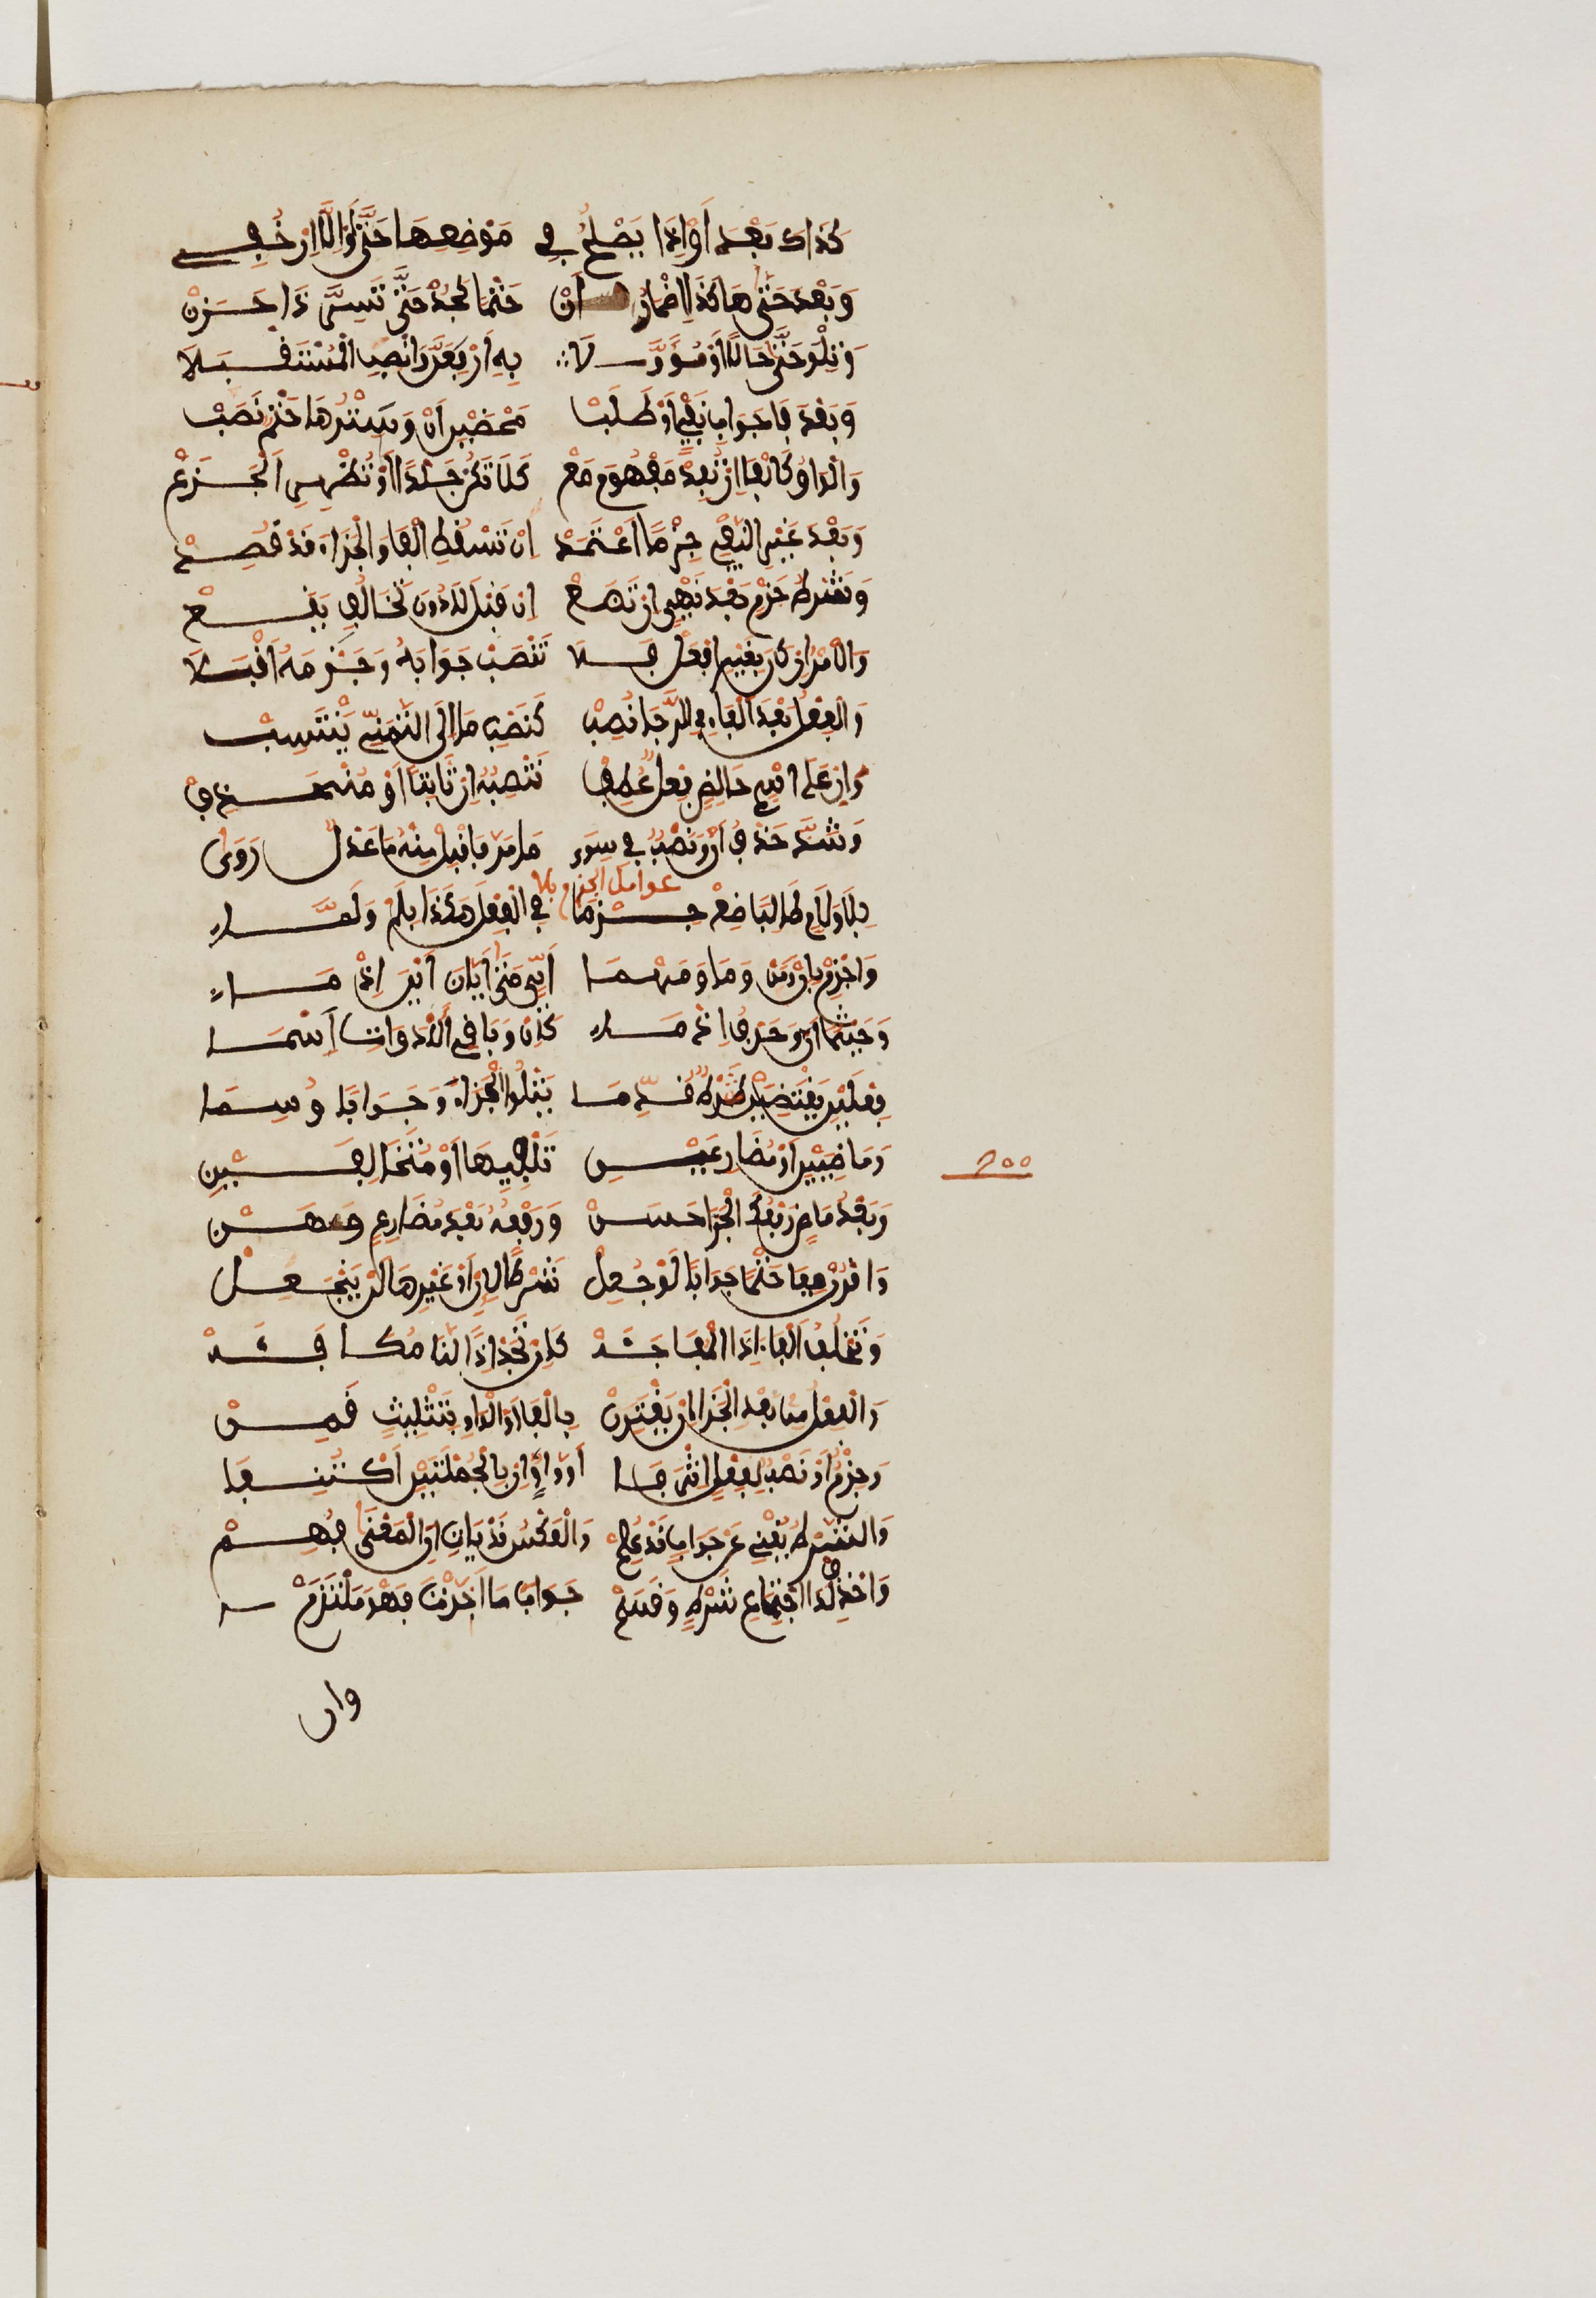 كَذَاكَ بَعْدَ أَوْ إِذَا يَصْلُحُ فِي مَوْضِعِهَا حَتَّى أَوِ الَّا انْ خُفِي
وَبَعْدَ حَتَّى هَاكَذَا اِضْمَارُ أَنْ حَتْمًا كَجُدْ حَتَّى تَسُرَّ ذَا حَزَنْ
وَتِلْوَ حَتَّى حَالًا أَوْ مُؤَوَّلَا بِهِ ارْفَعَنَّ وَانْصِبِ الْمُسْتَقْبَلَا
وَبَعْدَ فَا جَوَابِ نَفْيٍ أَوْ طَلَبْ مَحْضَيْنِ أَنْ وَسَتْرُهَا حَتْمٌ نَصَبْ
وَالْوَاوُ كَالْفَا إِنْ تُفِدْ مَفْهُومَ مَعْ كَلَا تَكُنْ جَلْدًا أَوْ تُظْهِرِ الْجَزَعْ
وَبَعْدَ غَيْرِ النَّفْيِ جَزْمًا اعْتَمِدْ إِنْ تَسْقُطِ الْفَا وَالْجَزَاءُ قَدْ قُصِدْ
وَشَرْطُ جَزْمٍ بَعْدَ نَهْيٍ إِنْ تَضَعْ إِنْ قَبْلَ لَا دُونَ تَخَالُفٍ يَقَعْ
وَالْأَمْرُ إِنْ كَانَ بِغَيْرِ افْعَلْ فَلَا تَنْصِبْ جَوَابَهُ وَجَزْمَهُ اقْبَلَا
وَالْفِعْلُ بَعْدَ الْفَاءِ فِي الرَّجَا نُصِبْ كَنَصْبِ مَا إِلَى التَّمَنِّي يَنْتَسِبْ
وَإِنْ عَلَى اسْمٍ خَالِصٍ فِعْلٌ عُطِفْ تَنْصِبُهُ إِنْ ثَابِتًا أَوْ مُنْحَذِفْ
وَشَذَّ حَذْفُ أَنْ وَنَصْبٌ فِي سِوَى مَا مَرَّ فَاقْبَلْ مِنْهُ مَا عَدْلٌ رَوَى
عوامل الجزم
بِلَا وَلَامٍ طَالِبًا ضَعْ جَزْمَا فِي الْفِعْلِ هَكَذَا بِلَمْ وَلَمَّا
وَاجْزِمْ بِإِنْ وَمَنْ وَمَا وَمَهْمَا أَيٍّ مَتَى أَيَّانَ أَيْنَ إِذْ مَا
وَحَيْثُمَا أَنَّى وَحَرْفٌ إِذْ مَا كَإِنْ وَبَاقِي الْأَدَوَاتِ أَسْمَا
فِعْلَيْنِ يَقْتَضِينَ شَرْطٌ قُدِّمَا يَتْلُو الْجَزَاءُ وَجَوَابًا وُسِمَا
وَمَاضِيَيْنِ أَوْ مُضَارِعَيْنِ تُلْفِيهِمَا أَوْ مُتَخَالِفَيْنِ
٢٠٠
وَبَعْدَ مَاضٍ رَفْعُكَ الْجَزَا حَسَنْ وَرَفْعُهُ بَعْدَ مُضَارِعٍ وَهَنْ
وَاقْرُنْ بِفَا حَتْمًا جَوَابًا لَوْ جُعِلْ شَرْطًا لِإِنْ أَوْ غَيْرِهَا لَمْ يَنْجَعِلْ
وَتَخْلُفُ الْفَاءَ إِذَا الْمُفَاجَأَهْ كَإِنْ تَجُدْ إِذًا لَنَا مُكَافَأَهْ
وَالْفِعْلُ مِنْ بَعْدِ الْجَزَا إِنْ يَقْتَرِنْ بِالْفَا أَوِ الْوَاوِ بِتَثْلِيثٍ قَمِنْ
وَجَزْمٌ أَوْ نَصْبٌ لِفِعْلٍ إِثْرَ فَا أَوْ وَاوٍ إِنْ بِالْجُمْلَتَيْنِ اكْتُنِفَا
وَالشَّرْطُ يُغْنِي عَنْ جَوَابٍ قَدْ عُلِمْ وَالْعَكْسُ قَدْ يَأْتِي إِنِ الْمَعْنَى فُهِمْ
وَاحْذِفْ لَدَى اجْتِمَاعِ شَرْطٍ وَقَسَمْ جَوَابَ مَا أَخَّرْتَ فَهْوَ مُلْتَزَمْ
وان